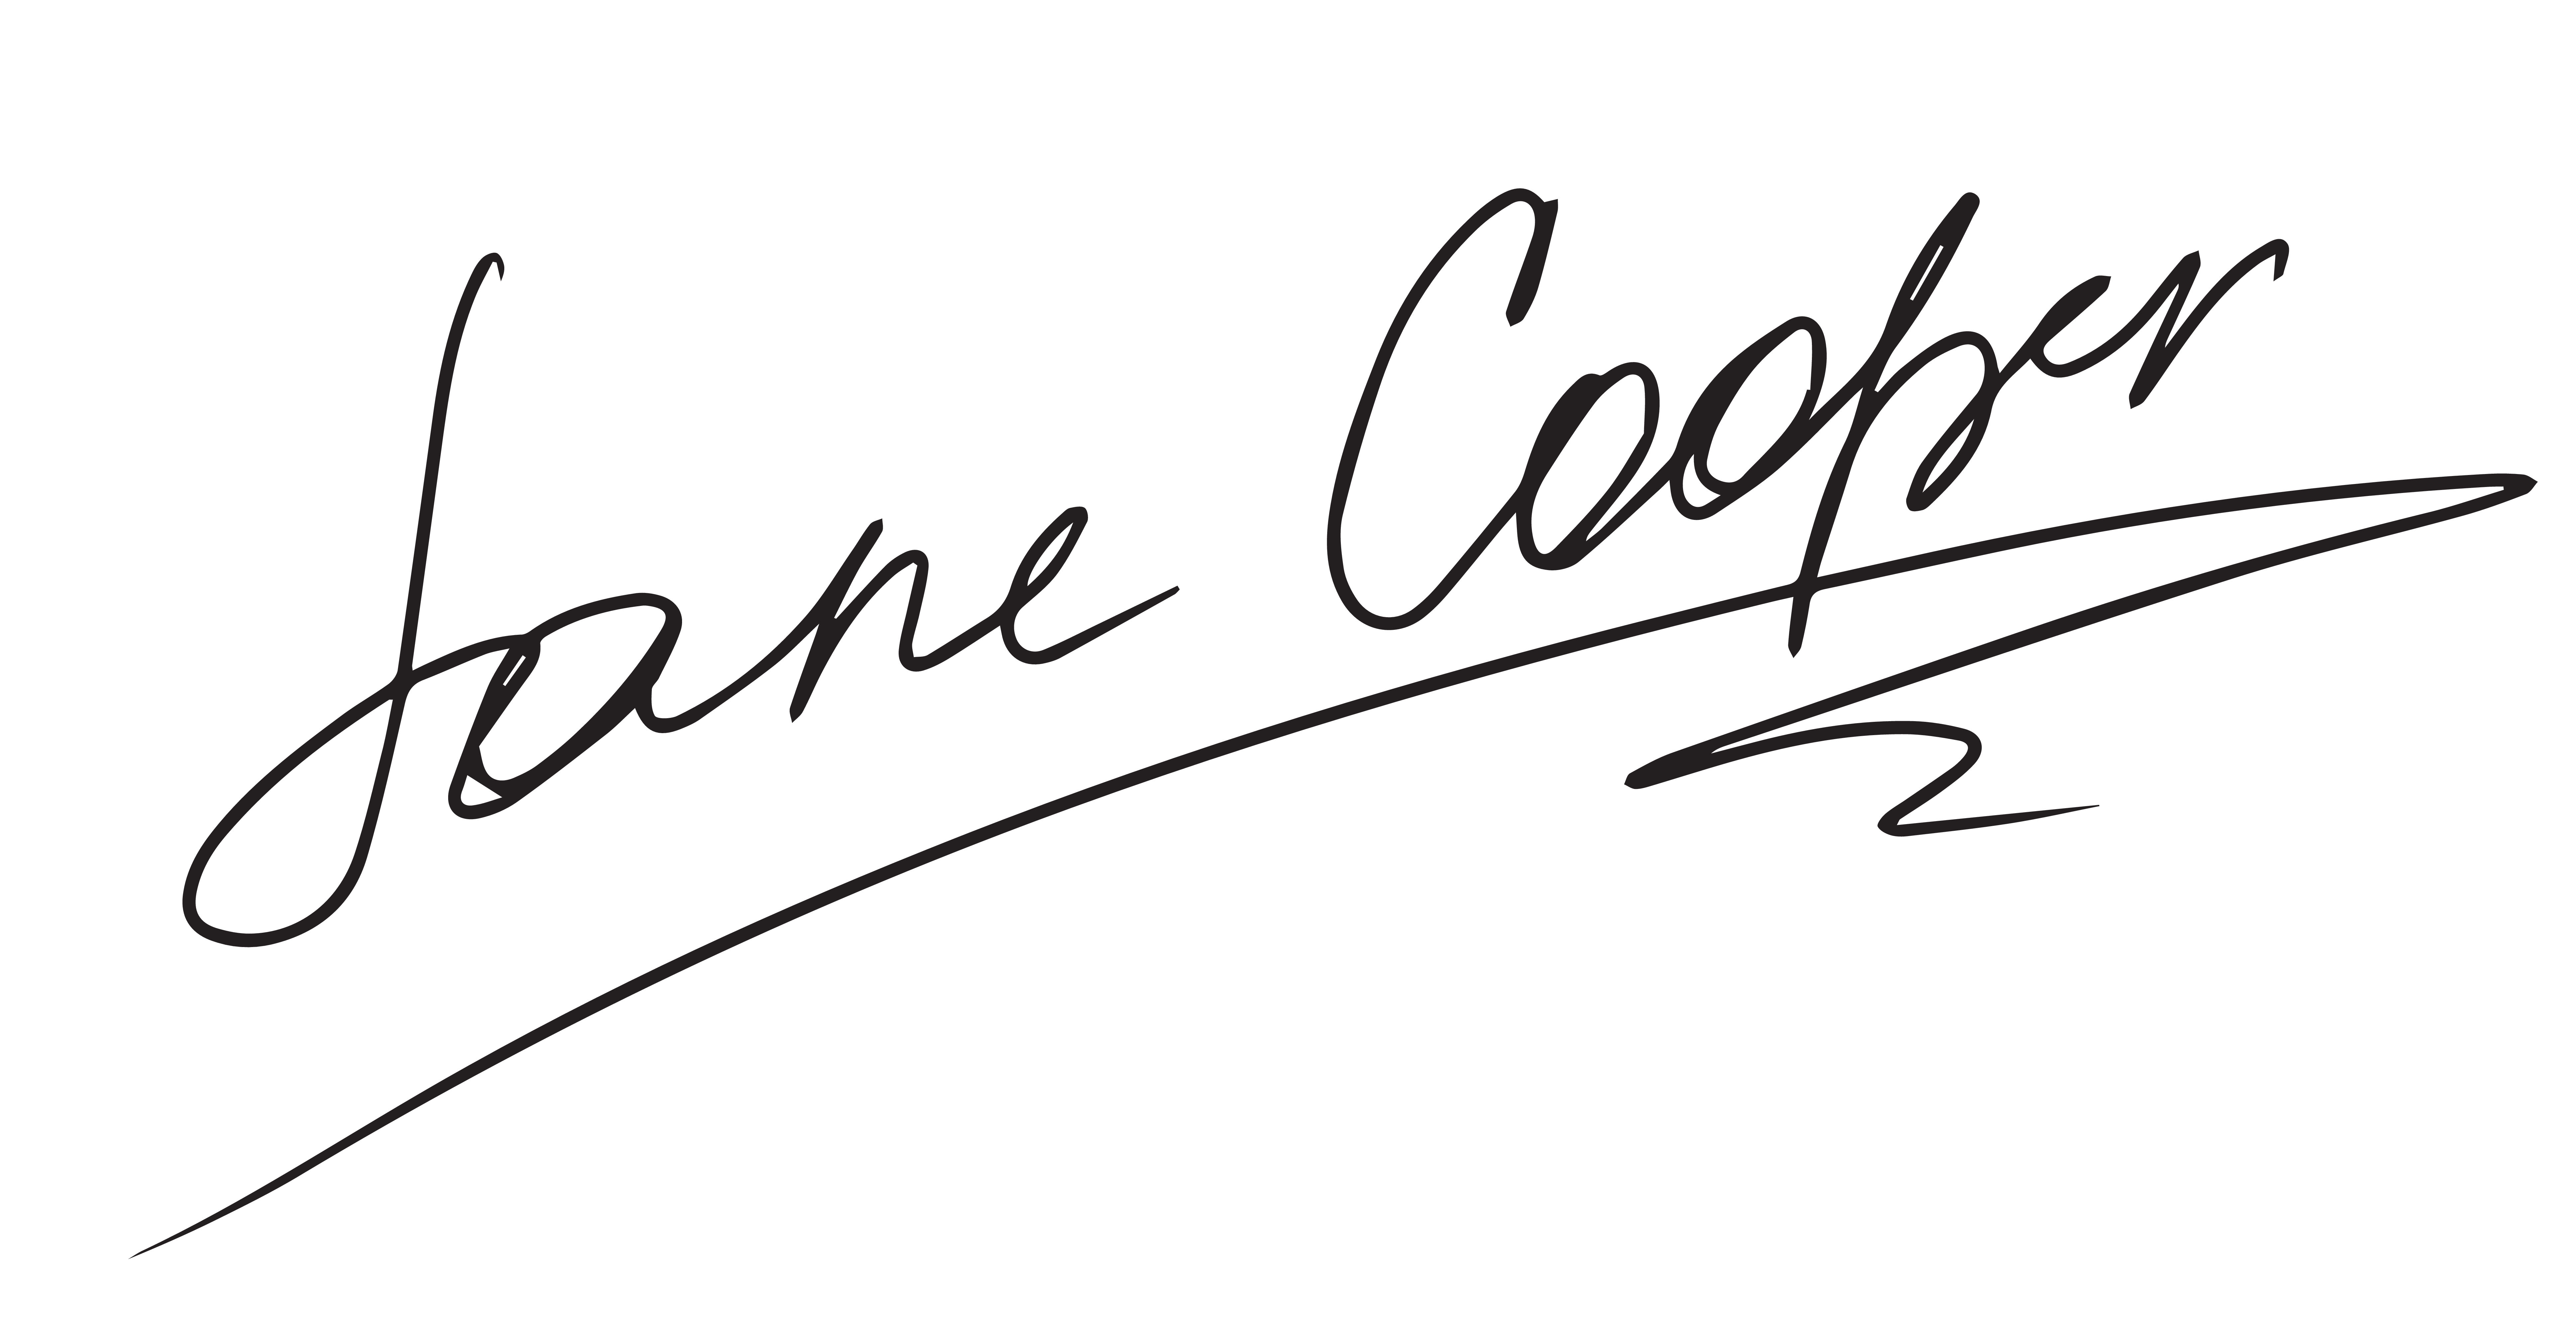 Jane Cooper